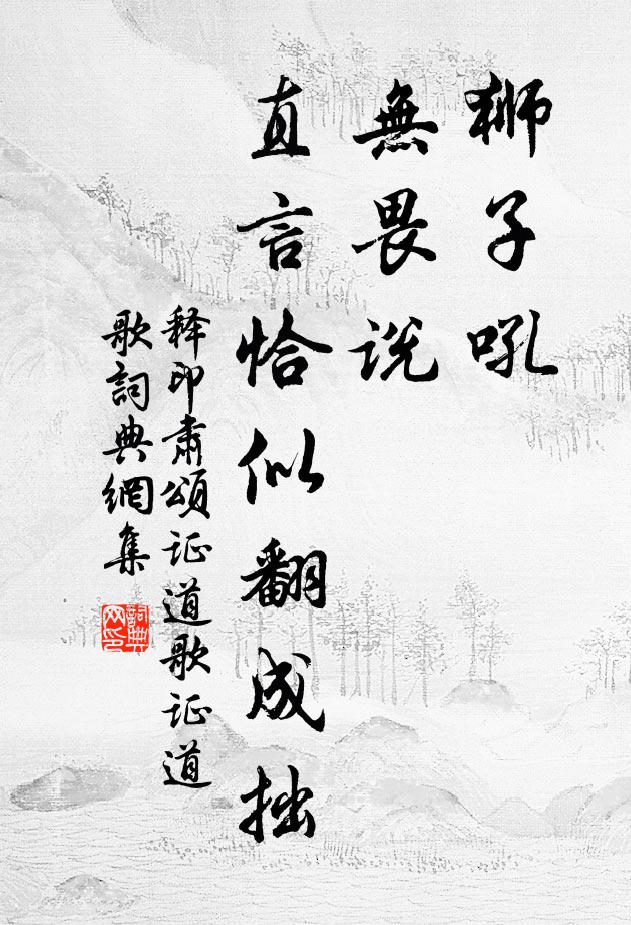 獅子吼
無畏說
直言恰似翻成拙
释印肃頌证道歌证道
歌詞典網集
詞典
网印